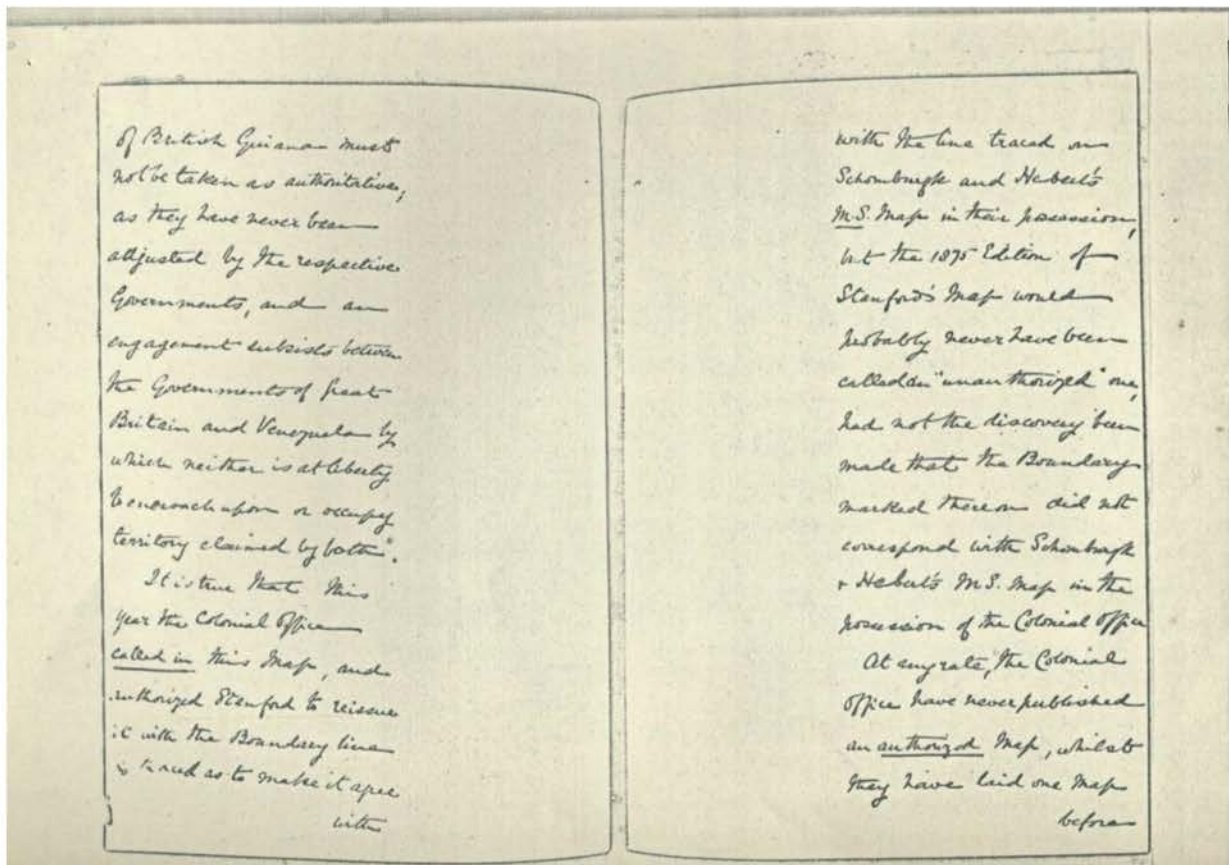 of British Guiana must
not be taken as authoritative,
as they have never been
adjusted by the respective
Governments, and an
engagement subsists between
the Governments of Great
Britain and Venezuela by
which neither is at liberty
to encroach upon or occupy
territory claimed by both".
It is true that this
year the Colonial Office
called in this Map, and
authorized Stanford to reissue
it with the Boundary line
so traced as to make it agree
with
with the line traced on
Schomburgk and Hebert's
M.S. Map in their possession,
but the 1875 Edition of
Stanford's Map would
probably never have been
called an "unauthorized" one,
had not the discovery been
made that the Boundary
marked thereon did not
correspond with Schomburgk
& Hebert's M.S. Map in the
possession of the Colonial Office
At any rate, the Colonial
Office have never published
an authorized Map, whilst
they have laid one Map
before